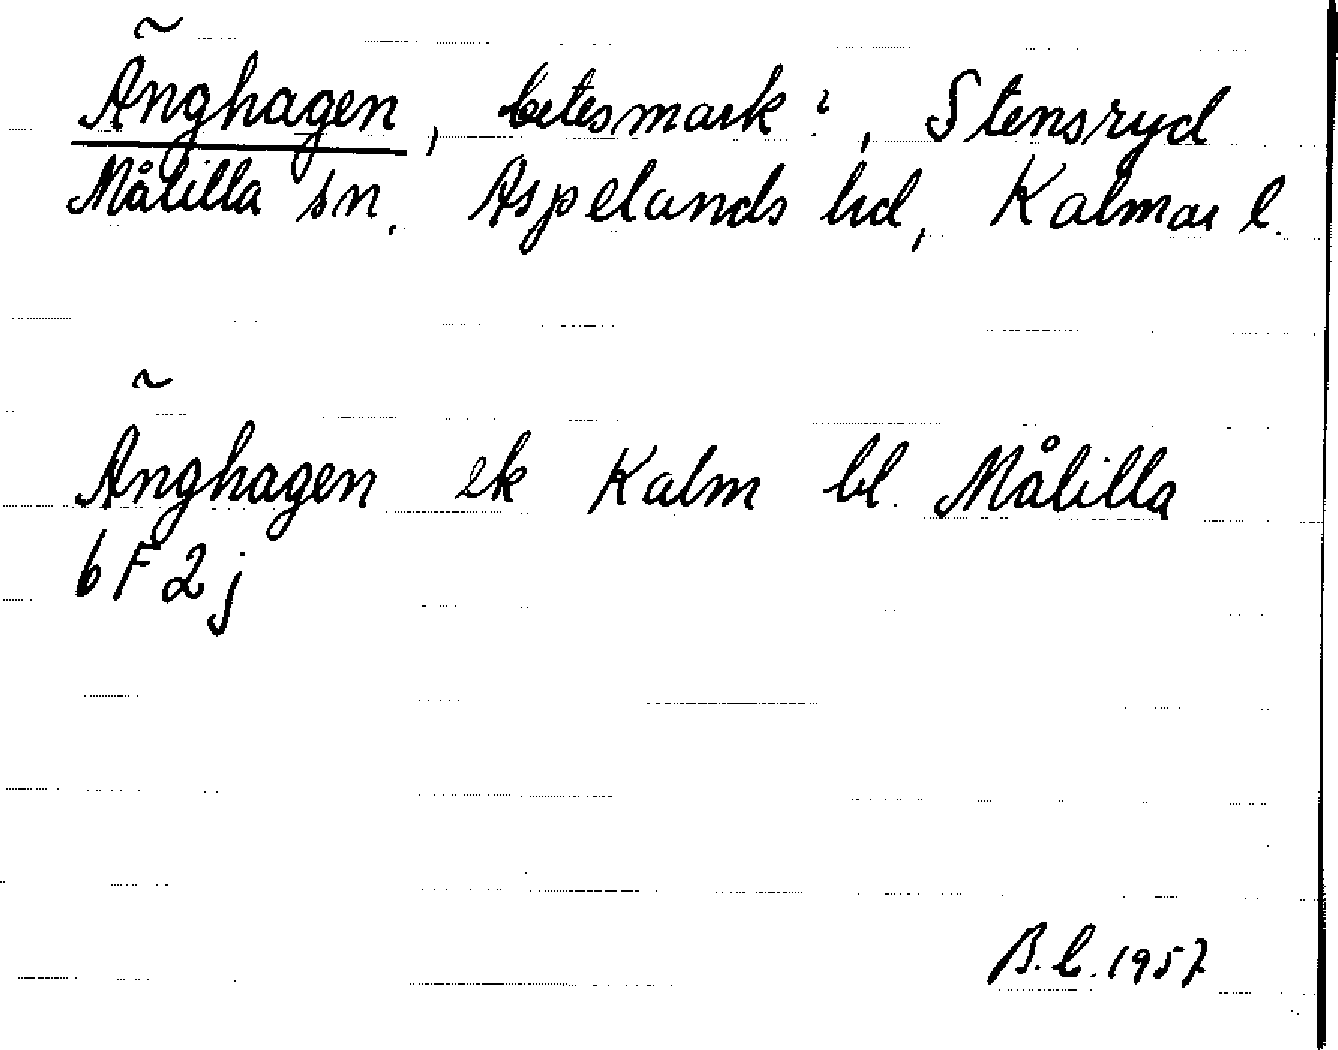 Änghagen, betesmark?, Stensryd
Målilla sn. Aspelands hd, Kalmar l.
Änghagen ek Kalm bl. Målilla
6F2j
B.L. 1957